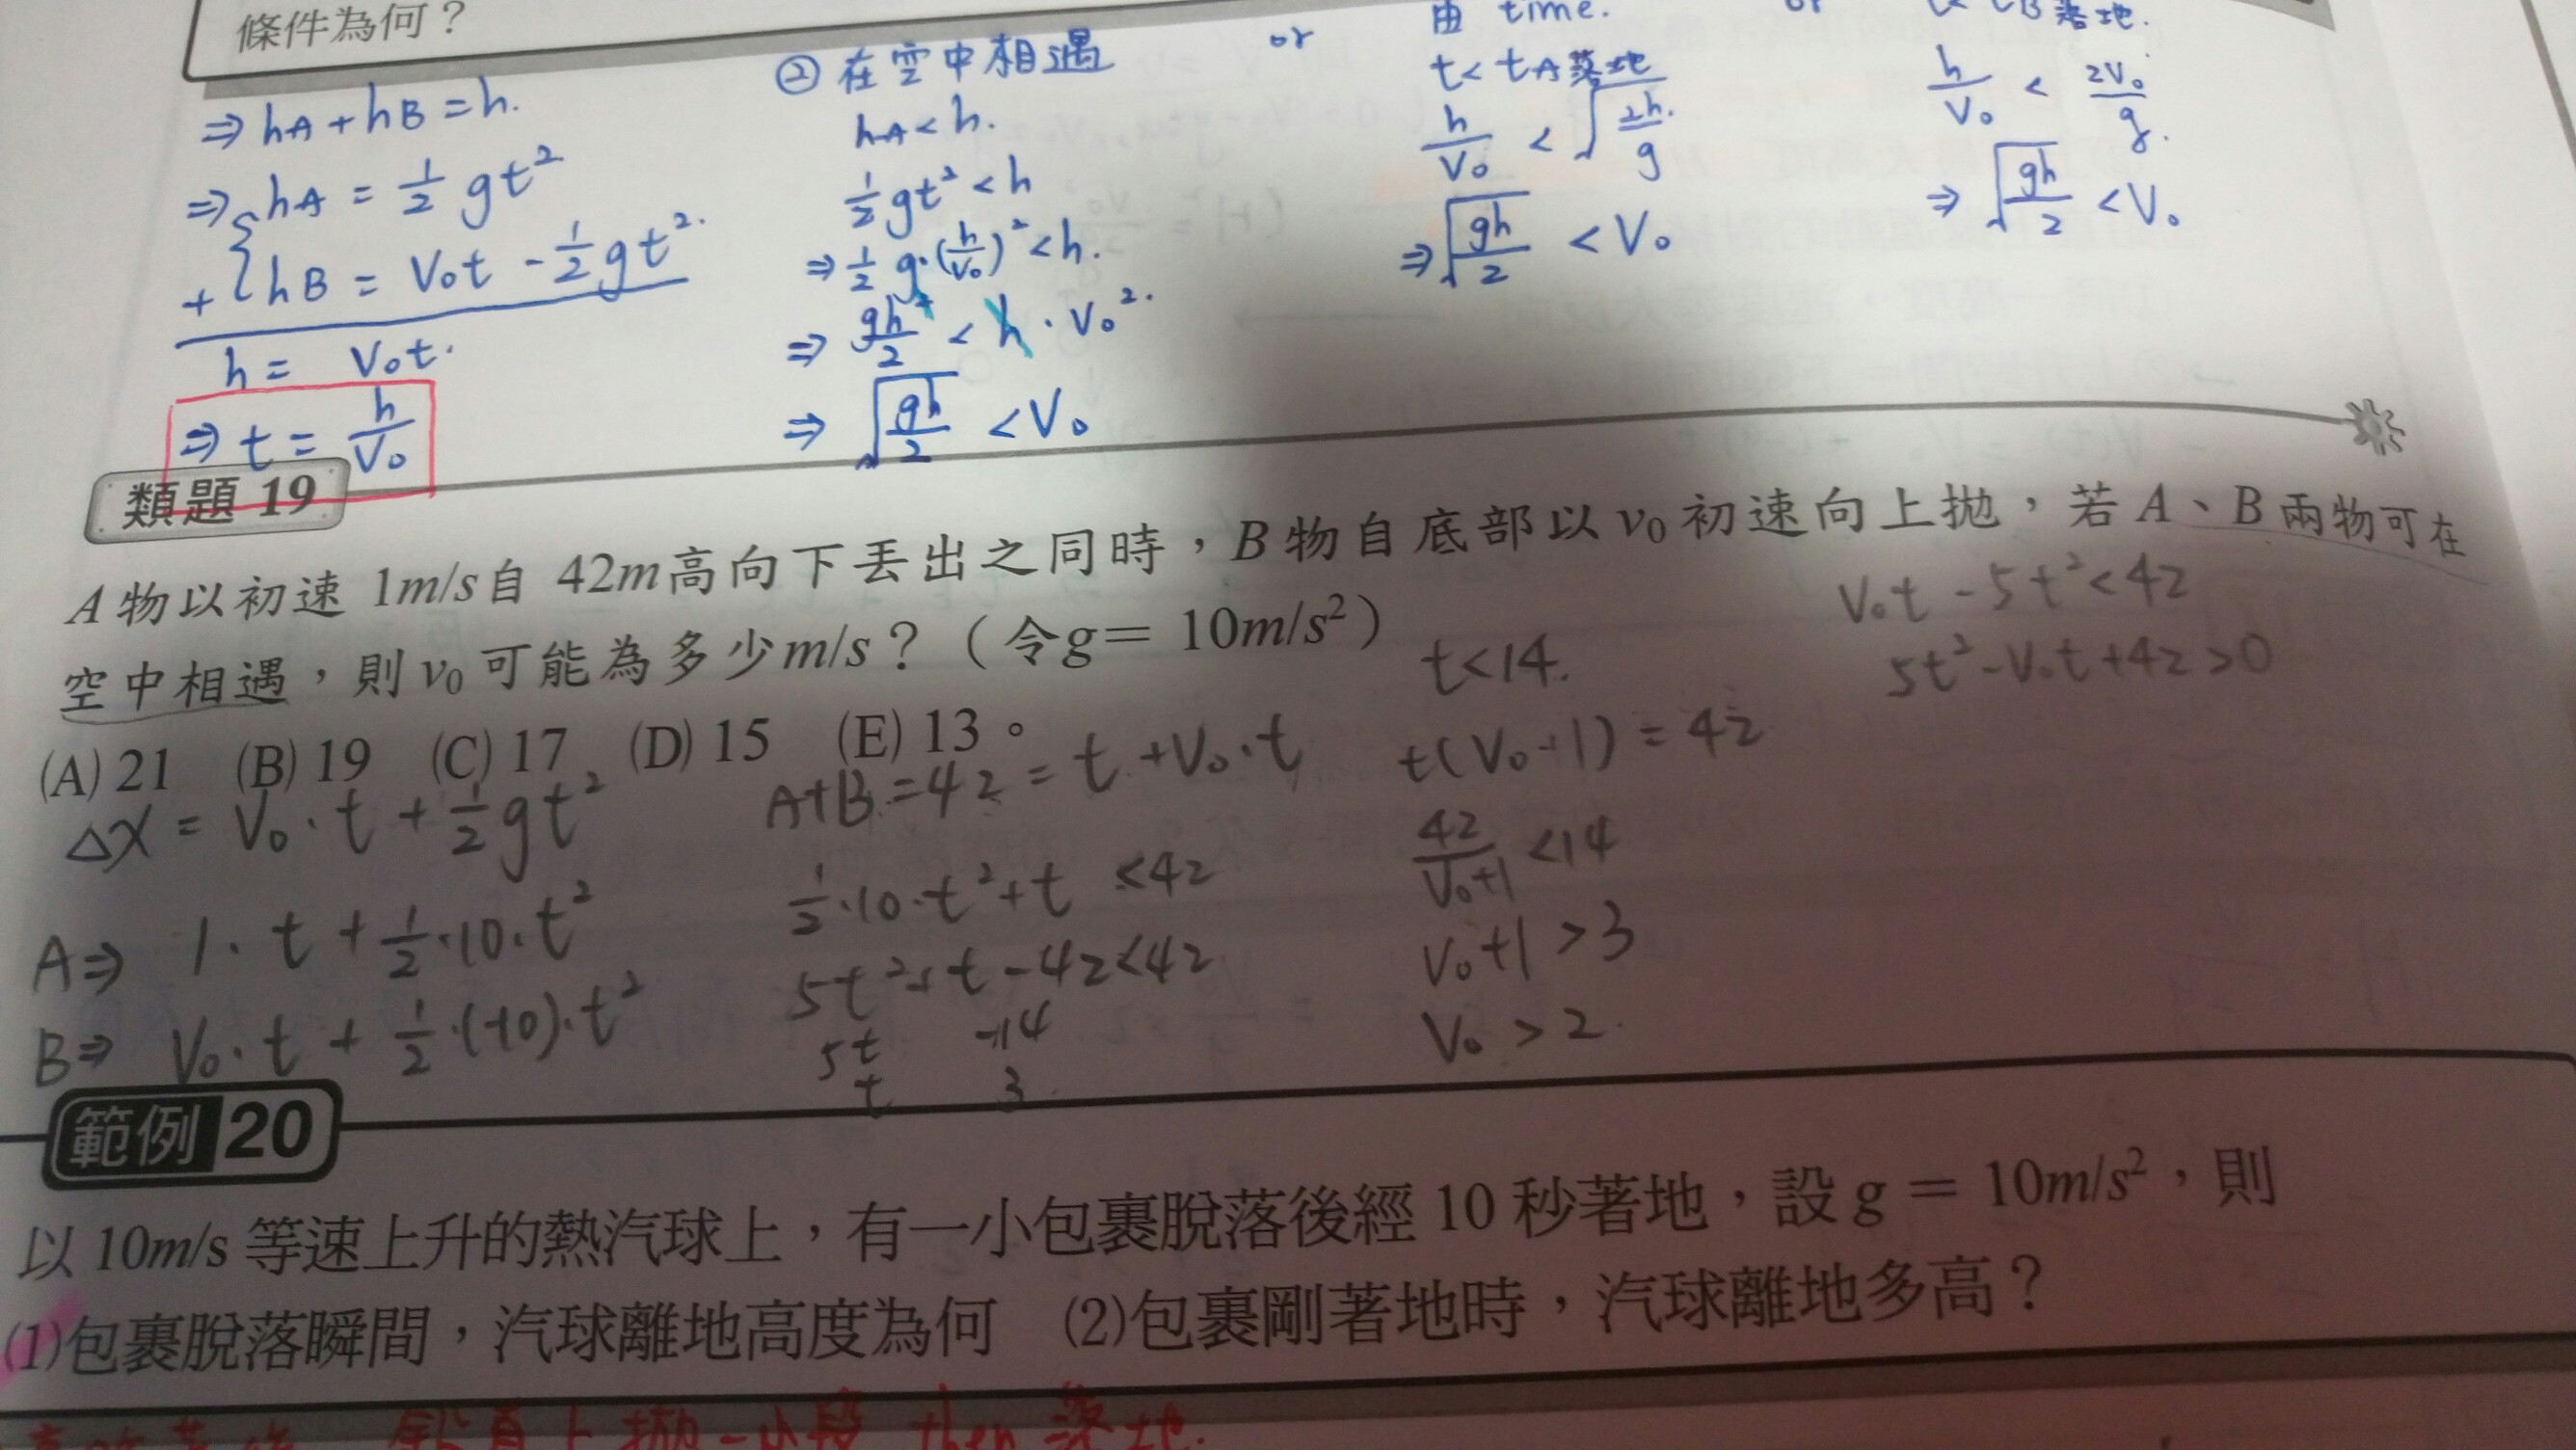 條件為何？
⇒ hA + hB = h.
⇒ hA = 1/2 gt²
+ { hB = V₀t - 1/2 gt².
h = V₀t.
⇒ t = h/V₀
② 在空中相遇
hA < h.
1/2 gt² < h
⇒ 1/2 g·(h/V₀)² < h.
⇒ gh²/2 < h · V₀².
⇒ √(gh/2) < V₀
or
由 time.
t < tA落地
h/V₀ < √(2h/g)
⇒ √(gh/2) < V₀
or
t < tB落地.
h/V₀ < 2V₀/g.
⇒ √(gh/2) < V₀
類題 19
A 物以初速 1m/s自 42m高向下丟出之同時，B 物自底部以 v₀ 初速向上拋，若 A、B 兩物可在
空中相遇，則 v₀ 可能為多少m/s？（令g＝ 10m/s²）
(A) 21 (B) 19 (C) 17 (D) 15 (E) 13。
ΔX = V₀·t + 1/2 gt²
A⇒ 1·t + 1/2·10·t²
B⇒ V₀·t + 1/2·(-10)·t²
A+B = 42 = t + V₀·t
1/2·10·t² + t < 42
5t² + t - 42 < 42
5t -14
t 3
t < 14.
t(V₀+1) = 42
42/(V₀+1) < 14
V₀+1 > 3
V₀ > 2.
V₀t - 5t² < 42
5t² - V₀t + 42 > 0
範例 20
以 10m/s 等速上升的熱汽球上，有一小包裹脫落後經 10 秒著地，設 g ＝ 10m/s²，則
(1)包裹脫落瞬間，汽球離地高度為何 (2)包裹剛著地時，汽球離地多高？
鉛直上拋一小段 then 落地.